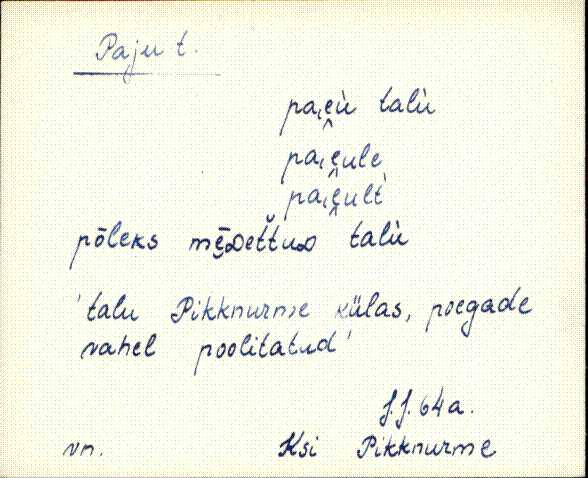 Paju t.
pai̯e̮ù talù
pai̯e̮ule
pai̯e̮ult
pōleks talù
'talu Pikknurme külas, poegade
vahel poolitatud'
J.J. 64 a.
vn. Ksi Pikknurme